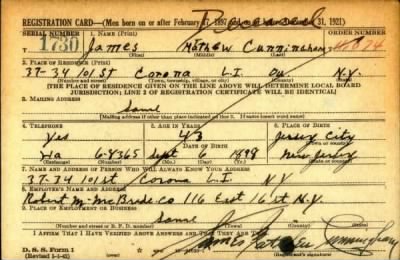 Deceased
REGISTRATION CARD—(Men born on or after February 17, 1897 and on or before December 31, 1921)
SERIAL NUMBER 1. NAME (Print) ORDER NUMBER
1730 James Mathew Cunningham
(First) (Middle) (Last)
2. PLACE OF RESIDENCE (Print)
37-34 101 St Corona L.I. N.Y.
(Number and street) (Town, township, village, or city) (County) (State)
[THE PLACE OF RESIDENCE GIVEN ON THE LINE ABOVE WILL DETERMINE LOCAL BOARD
JURISDICTION; LINE 2 OF REGISTRATION CERTIFICATE WILL BE IDENTICAL]
3. MAILING ADDRESS
Same
[Mailing address if other than place indicated on line 2. If same insert word same]
4. TELEPHONE 5. AGE IN YEARS 6. PLACE OF BIRTH
Yes 43 Jersey City
DATE OF BIRTH
6-8365 Sept 1898 New Jersey
7. NAME AND ADDRESS OF PERSON WHO WILL ALWAYS KNOW YOUR ADDRESS
37-34 101 St Corona L.I. N.Y.
8. EMPLOYER'S NAME AND ADDRESS
Robert M. McBride Co 116 East 16 st N.Y.
9. PLACE OF EMPLOYMENT OR BUSINESS
Same
(Number and street or R. F. D. number) (Town) (County) (State)
I AFFIRM THAT I HAVE VERIFIED ABOVE ANSWERS AND THAT THEY ARE TRUE.
James Cunningham
D. S. S. Form 1
(Registrant's signature)